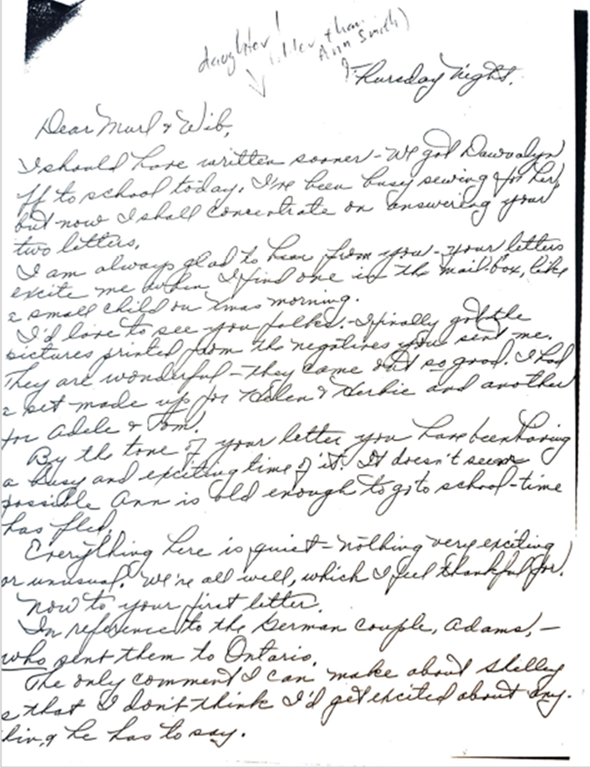 daughter!
older than
Ann Smith)
Thursday Night.
Dear Murl & Wib,
I should have written sooner - We got Dawvalyn
ff to school today. I've been busy sewing for her,
but now I shall concentrate on answering your
two letters.
I am always glad to hear from you - your letters
excite me when I find one in the mail-box, like
a small child on Xmas morning.
I'd love to see you folks. - I finally got the
pictures printed from the negatives you sent me.
They are wonderful - they came out so good. I had
a set made up for Helen & Herbie and another
for Adele & Tom.
By the tone of your letter you have been having
a busy and exciting time of it. It doesn't seem
possible Ann is old enough to go to school - time
has fled.
Everything here is quiet - nothing very exciting
or unusual. We're all well, which I feel thankful for.
Now to your first letter.
In reference to the German couple, Adams, -
who sent them to Ontario.
The only comment I can make about Shelley
s that I don't think I'd get excited about any-
hing he has to say.